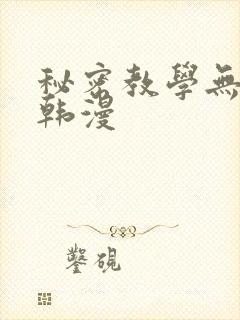 秘密教學無
韩漫
鑿硯